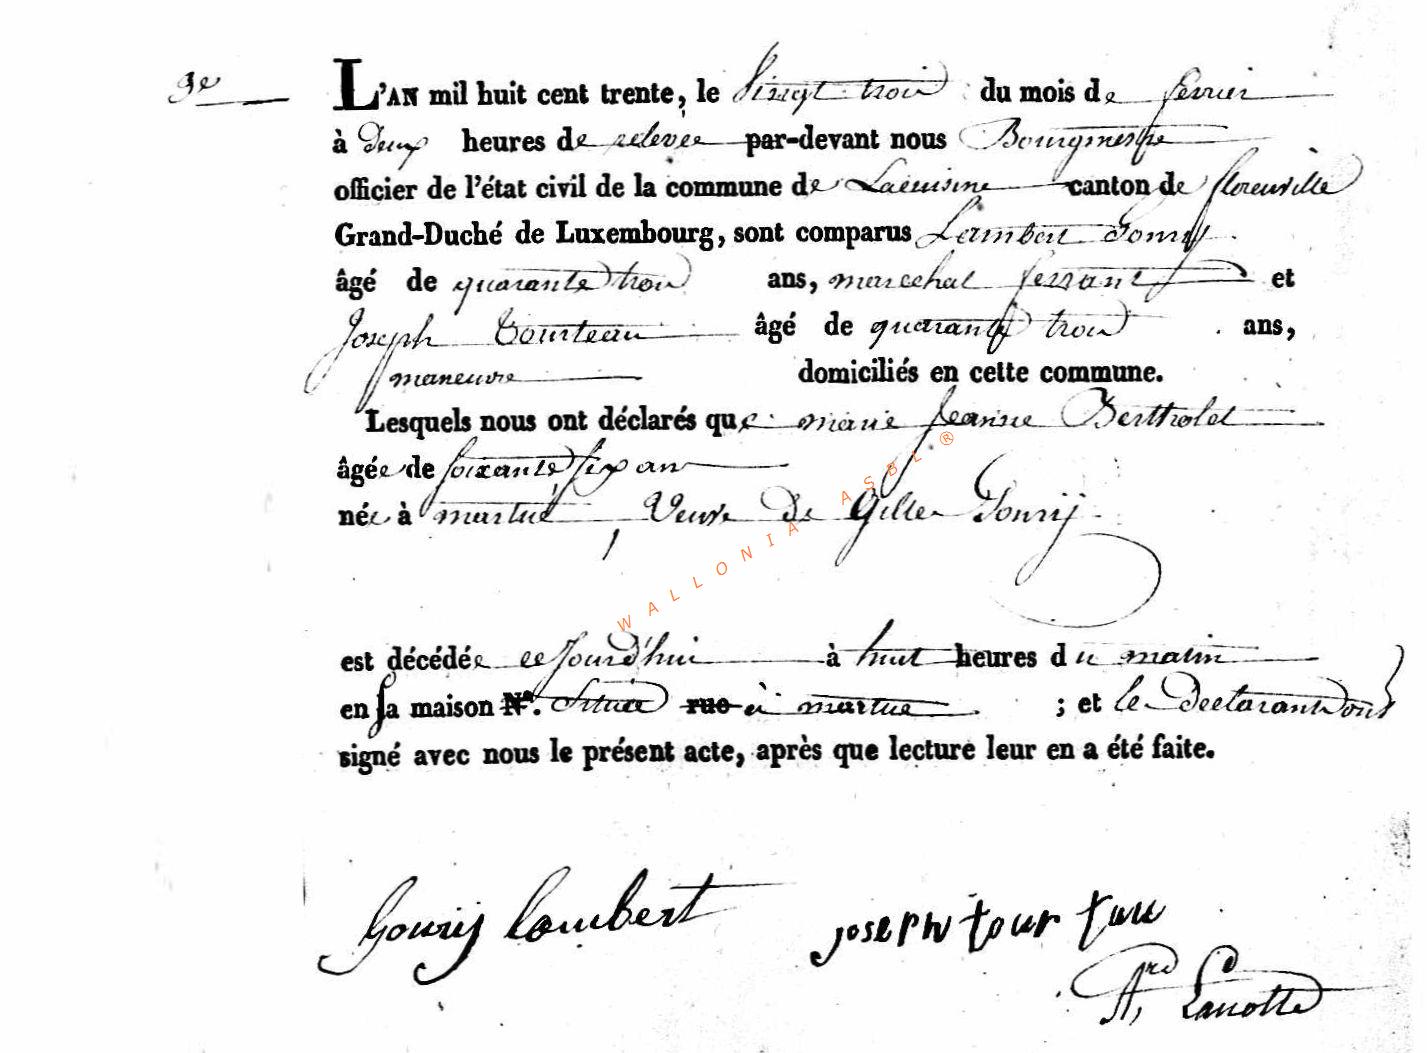 3e
L'AN mil huit cent trente, le vingt trois du mois de fevrier
à Deux heures de relevée par-devant nous Bourgmestre
officier de l'état civil de la commune de Lacuisine canton de florenville
Grand-Duché de Luxembourg, sont comparus Lambert Gourij
âgé de quarante trois ans, marechal ferrant et
Joseph Tourteau âgé de quarante trois ans,
maneuvre domiciliés en cette commune.
Lesquels nous ont déclarés que marie jeanne Bertholet
âgée de soixante six ans
née à martué, Veuve De Gilles Gourij
WALLONIA ASBL ®
est décédée ce jourd'hui à huit heures du matin
en sa maison N°. Situee rue à martué ; et le Declarant ont
signé avec nous le présent acte, après que lecture leur en a été faite.
Gourij lambert
joseph tourtau
Ard Lanotte